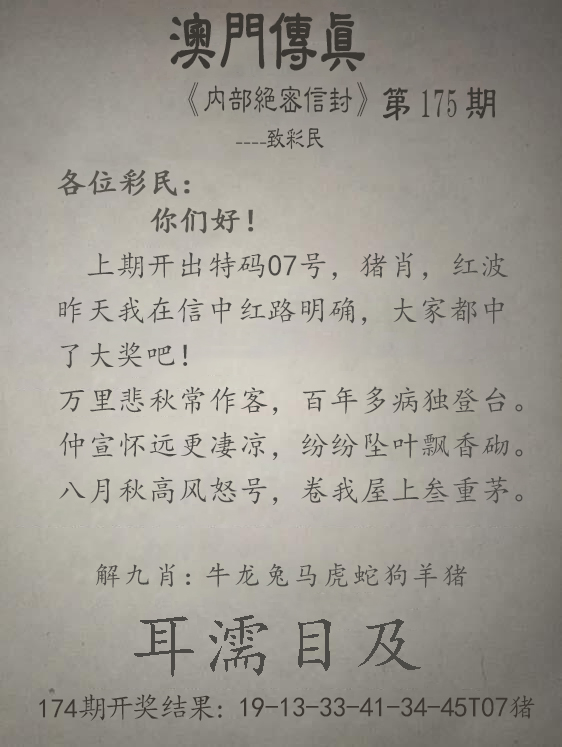 澳門傳眞
《内部絕密信封》第175期
----致彩民
各位彩民：
你们好！
上期开出特码07号，猪肖，红波
昨天我在信中红路明确，大家都中
了大奖吧！
万里悲秋常作客，百年多病独登台。
仲宣怀远更凄凉，纷纷坠叶飘香砌。
八月秋高风怒号，卷我屋上叁重茅。
解九肖：牛龙兔马虎蛇狗羊猪
耳濡目及
174期开奖结果：19-13-33-41-34-45T07猪